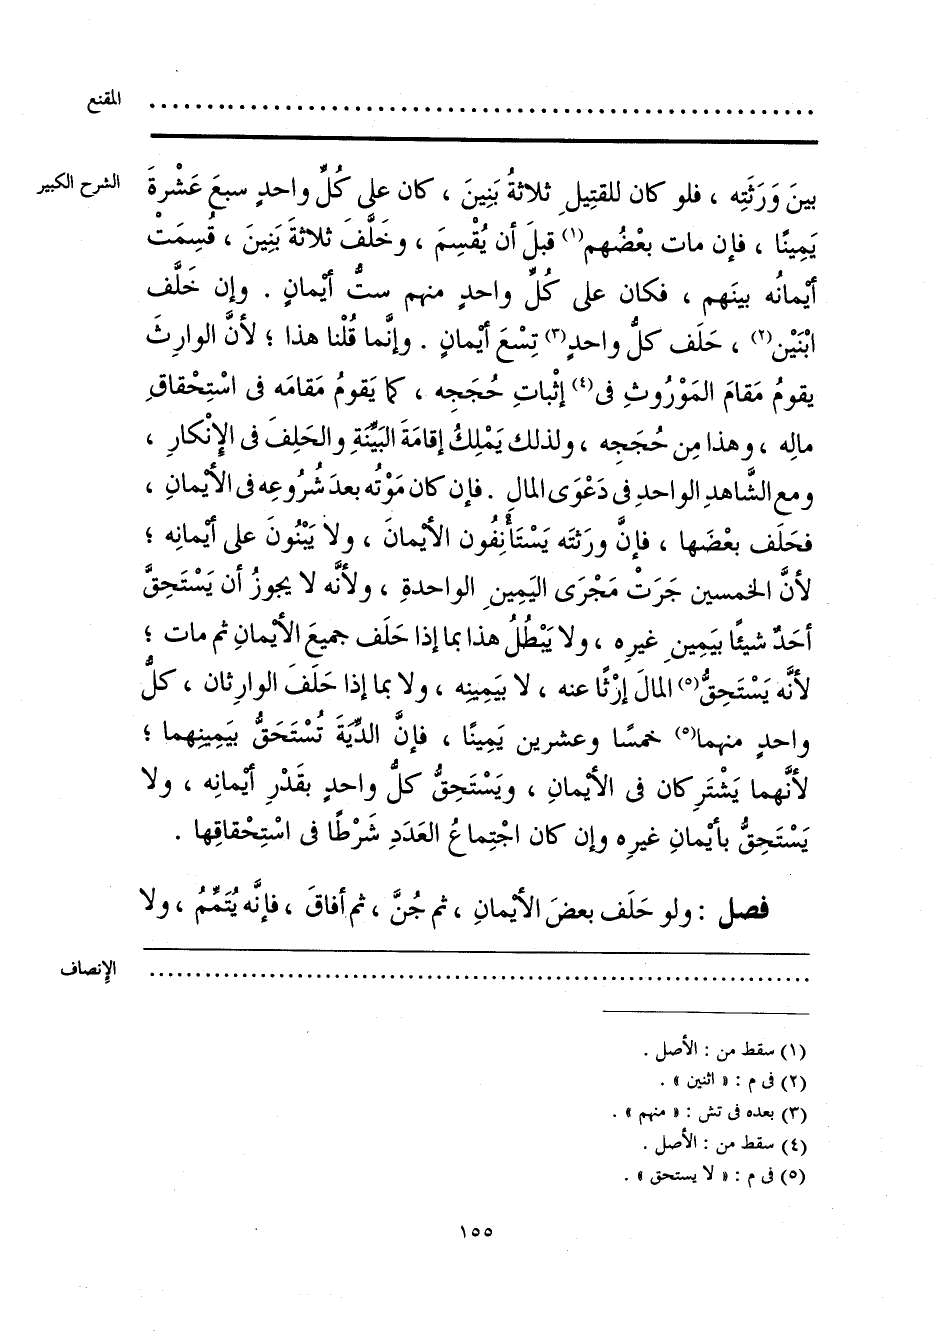 المقنع ................................................
الشرح الكبير
بينَ وَرَثَتِه ، فلو كان للقتِيلِ ثلاثةُ بَنِينَ ، كان على كُلِّ واحدٍ سبعَ عَشْرةَ
يَمِينًا ، فإن مات بعْضُهم(١) قبلَ أن يُقْسِمَ ، وخَلَّفَ ثلاثةَ بَنِينَ ، قُسِمَتْ
أيْمانُه بينَهم ، فكان على كُلِّ واحدٍ منهم ستُّ أيْمانٍ . وإن خَلَّف
ابْنَيْن(٢) ، حَلَف كلُّ واحدٍ(٣) تِسْعَ أيْمانٍ . وإنَّما قُلْنا هذا ؛ لأنَّ الوارِثَ
يقومُ مَقامَ المَوْرُوثِ فى(٤) إثْباتِ حُجَجِه ، كما يَقومُ مَقامَه فى اسْتِحْقاقِ
مالِه ، وهذا مِن حُجَجِه ، ولذلك يَمْلِكُ إقامَةَ البَيِّنَةِ والحَلِفَ فى الإِنْكارِ ،
ومع الشَّاهدِ الواحدِ فى دَعْوَى المالِ . فإن كان مَوْتُه بعدَ شُرُوعِه فى الأيْمانِ ،
فحَلَف بعْضَها ، فإنَّ ورَثَتَه يَسْتَأْنِفُون الأيْمانَ ، ولا يَبْنُونَ على أيْمانِه ؛
لأنَّ الخمسين جَرَتْ مَجْرَى اليَمِينِ الواحدةِ ، ولأنَّه لا يجوزُ أن يَسْتَحِقَّ
أحَدٌ شيئًا بيَمِينِ غيرِه ، ولا يَبْطُلُ هذا بما إذا حَلَف جميعَ الأيْمانِ ثم مات ؛
لأنَّه يَسْتَحِقُّ(٥) المالَ إرْثًا عنه ، لا بيَمِينِه ، ولا بما إذا حَلَفَ الوارِثان ، كلُّ
واحدٍ منهما(٥) خمسًا وعشرين يَمِينًا ، فإنَّ الدِّيَةَ تُسْتَحَقُّ بيَمِينِهما ؛
لأنَّهما يَشْتَرِكان فى الأيْمانِ ، ويَسْتَحِقُّ كلُّ واحدٍ بقَدْرِ أيْمانِه ، ولا
يَسْتَحِقُّ بأيْمانِ غيرِه وإن كان اجْتِماعُ العَدَدِ شَرْطًا فى اسْتِحْقاقِها .
فصل : ولو حَلَف بعضَ الأيْمانِ ، ثم جُنَّ ، ثم أفاقَ ، فإنَّه يُتَمِّمُ ، ولا
الإنصاف ................................................
(١) سقط من : الأصل .
(٢) فى م : « اثنين » .
(٣) بعده فى تش : « منهم » .
(٤) سقط من : الأصل .
(٥) فى م : « لا يستحق » .
١٥٥